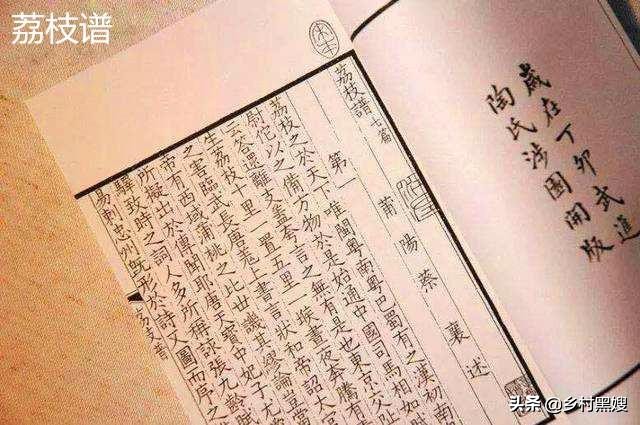 荔枝谱
歲在丁卯武進
陶氏涉園開版
荔枝譜 七篇
莆陽蔡襄述
第一
荔枝之於天下唯閩粵南粵巴蜀有之漢初南
尉佗以之備方物於是始通中國司馬相如
云荅遝離支蓋夸言之無有是也東京交趾
生荔枝十里一置五里一堠晝夜奔騰有
之害臨武長唐羌上書言狀和帝詔大官
帝有西域蒲桃之比世譏其繆論豈當
所擬出於傳聞耶唐天寶中妃子尤
驛致時之詞人多所稱詠張九齡賦
易刺忠州既形於詩又圖而序之
头条 @乡村黑嫂